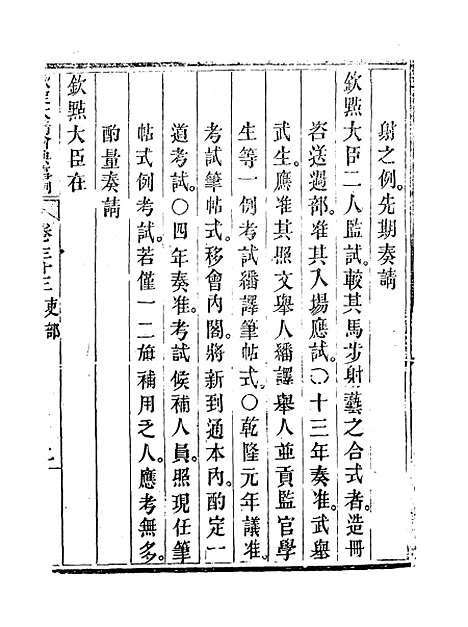 射之例。先期奏請
欽㸃大臣二人監試。較其馬步射藝之合式者。造冊
咨送過部。准其入場應試。○十三年奏准。武舉
武生。應准其照文舉人繙譯舉人並貢監官學
生等一例考試繙譯筆帖式。○乾隆元年議准。
考試筆帖式。移會內閣。將新到通本內。酌定一
道考試。○四年奏准。考試候補人員。照現任筆
帖式例考試。若僅一二旗補用乏人。應考無多。
酌量奏請
欽㸃大臣在
卷三十三 吏部